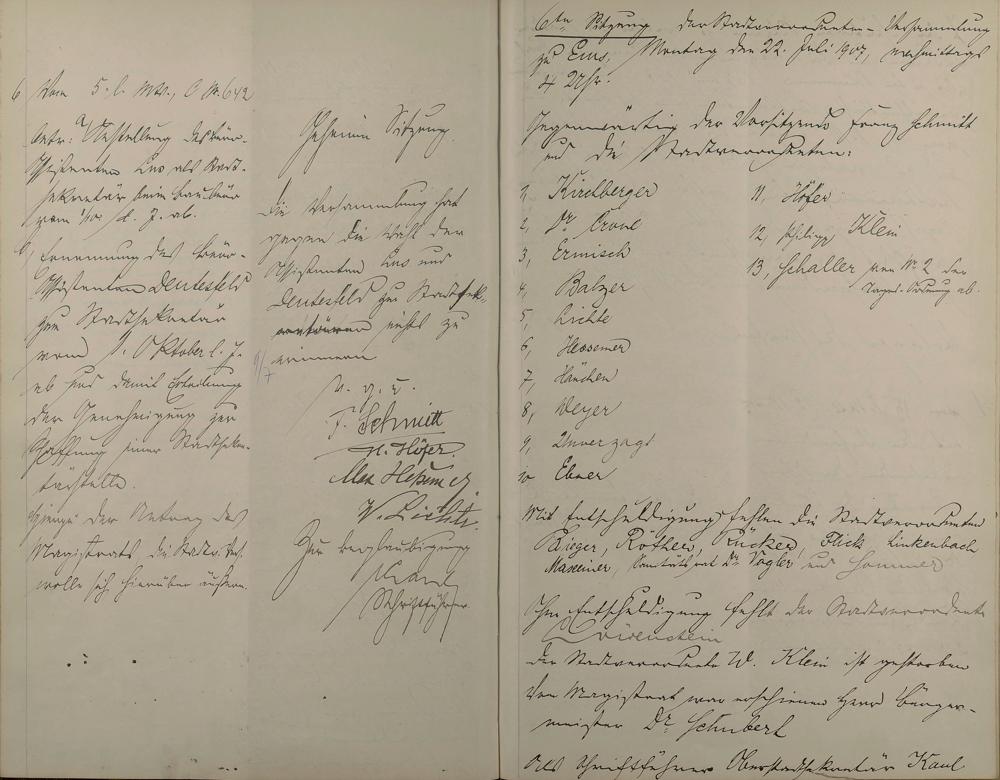 6 Vom 5. l. Mts., C No. 642
betr: a, Anstellung des Büro-
Assistenten Lus als Stadt-
sekretär beim Baubüro
vom 1/10. d. J. ab.
b, Ernennung des Büro-
Assistenten Deutesfeld
zum Stadtsekretär
vom 1. Oktober l. J.
ab und damit Erteilung
der Genehmigung zur
Schaffung einer Stadtsekre-
tärstelle.
Hierzu der Antrag des
Magistrats die Stadtv. Vers.
wolle sich hierüber äußern.
Geheime Sitzung.
Die Versammlung hat
gegen die Wahl der
Assistenten Lus und
Deutesfeld zu Stadtsek-
retären nichts zu
erinnern
9/7
v. g. u.
F. Schmitt
H. Höfer.
Max Heßemer
W. Lichte.
Zur Beglaubigung
Kaul
Schriftführer
6te Sitzung der Stadtverordneten-Versammlung
zu Ems, Montag den 22. Juli 1907, nachmittags
4 Uhr.
Gegenwärtig der Vorsitzende Franz Schmitt
und die Stadtverordneten:
1, Kirchberger
2, Dr. Crone
3, Ermisch
4, Balzer
5, Lichte
6, Hessemer
7, Hänchen
8, Weyer
9, Unverzagt
10 Ebner
11, Höfer
12, Philipp Klein
13, Schaller von No. 2 der
Tages-Ordnung ab.
Mit Entschuldigung fehlen die Stadtverordneten
Krieger, Röther, Rücker, Flick, Linkenbach
Maxeiner, Sanitätsrat Dr. Vogler und Sommer
Ohne Entschuldigung fehlt der Stadtverordnete
Löwenstein
Der Stadtverordnete W. Klein ist gestorben
Vom Magistrat war erschienen Herr Bürger-
meister Dr. Schubert
Als Schriftführer Oberstadtsekretär Kaul